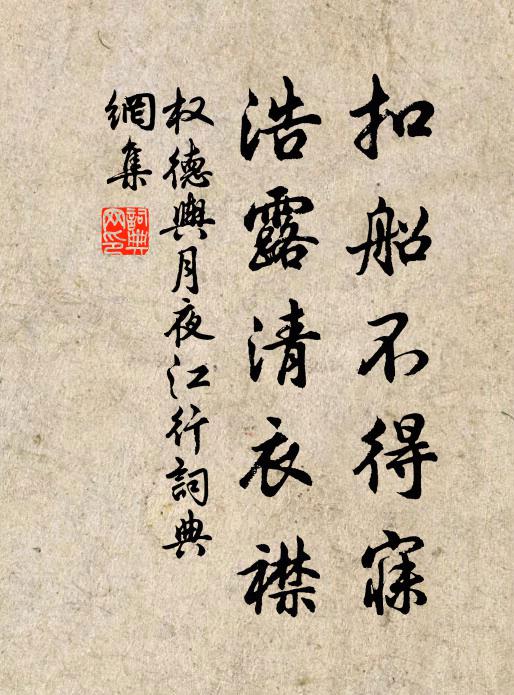 扣船不得寐
浩露清衣襟
权德輿月夜江行詞典
網集
詞典
网印